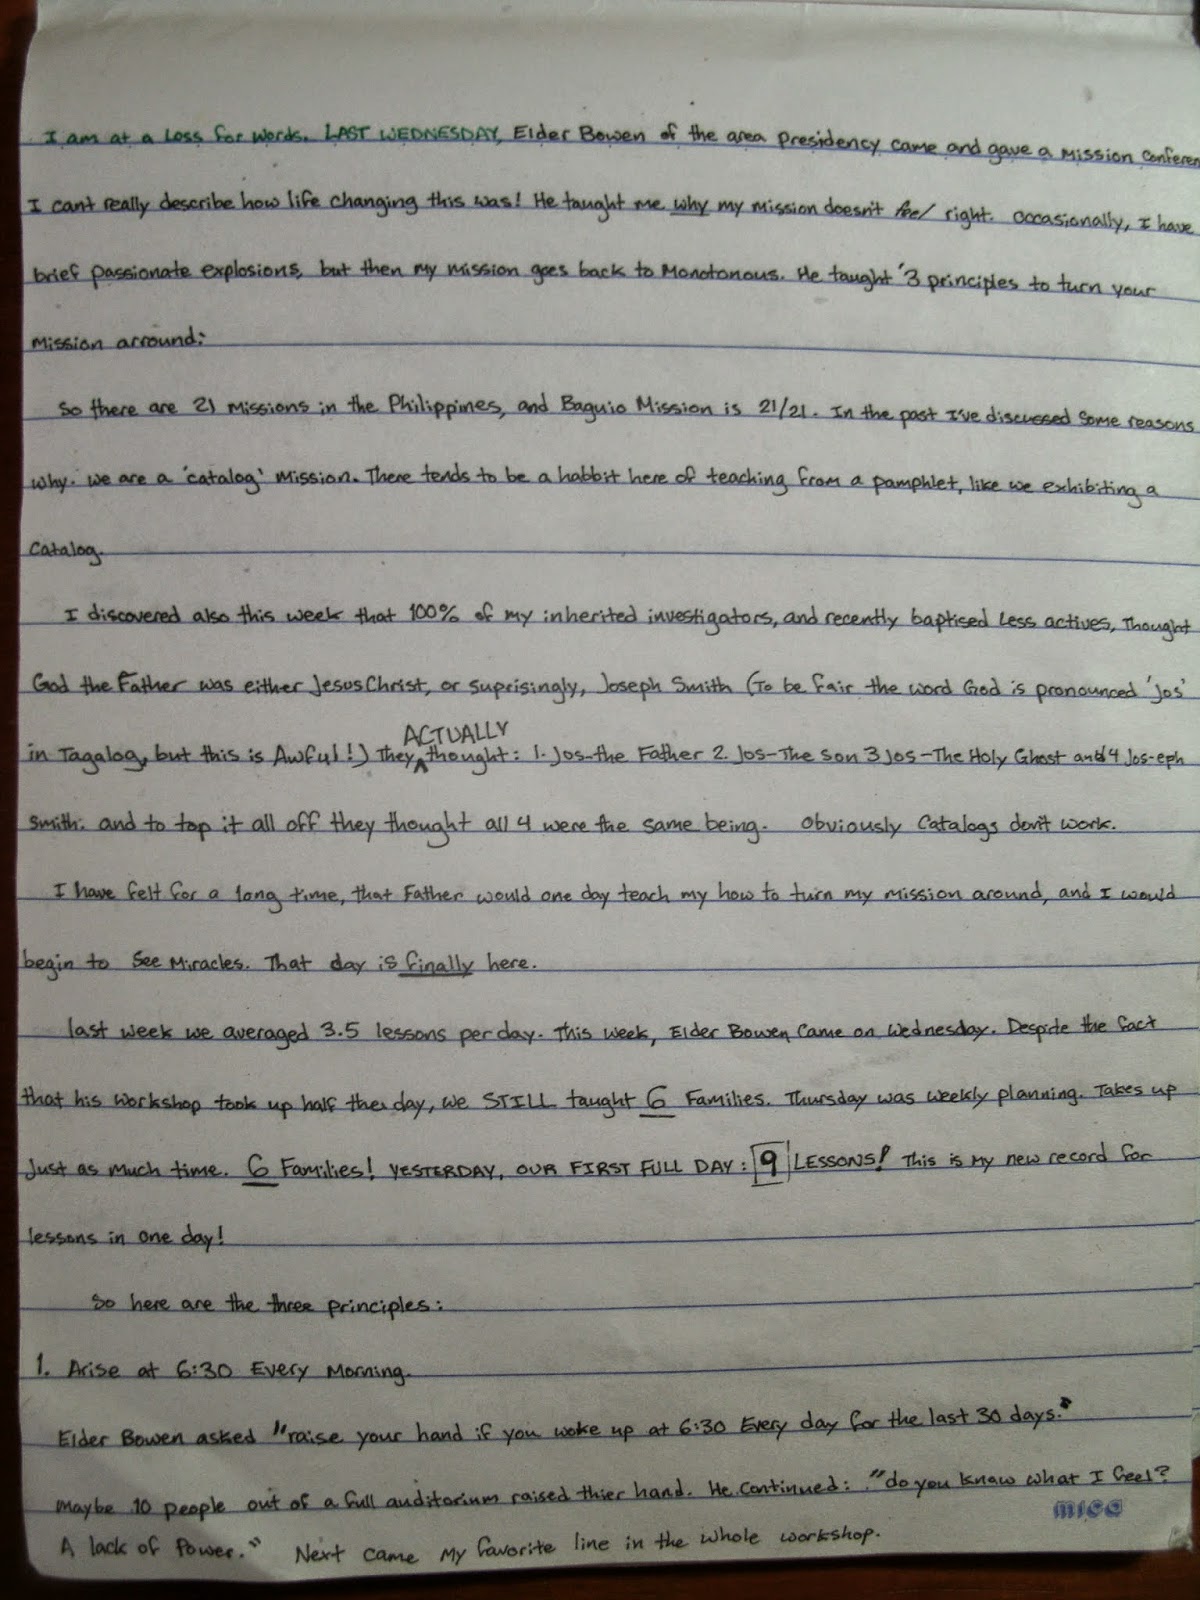 I am at a Loss for words. LAST WEDNESDAY, Elder Bowen of the area presidency came and gave a Mission Conferen
I can't really describe how life changing this was! He taught me why my Mission doesn't feel right. occasionally, I have
brief passionate explosions, but then my mission goes back to Monotonous. He taught '3 principles to turn your
Mission arround:
So there are 21 Missions in the Philippines, and Baguio Mission is 21/21. In the past I've discussed some reasons
why. we are a 'catalog' Mission. There tends to be a habbit here of teaching from a pamphlet, like we exhibiting a
Catalog.
I discovered also this week that 100% of my inherited investigators, and recently baptised less actives, thought
God the Father was either Jesus Christ, or suprisingly, Joseph Smith (To be fair the word God is pronounced 'Jos'
ACTUALLY
in Tagalog, but this is Awful!) They ^ thought: 1. Jos-the Father 2. Jos-The Son 3 Jos-The Holy Ghost and 4 Jos-eph
Smith. and to top it all off they thought all 4 were the same being. Obviously Catalogs don't work.
I have felt for a long time, that Father would one day teach my how to turn my mission around, and I would
begin to see Miracles. That day is finally here.
last week we averaged 3.5 lessons per day. This week, Elder Bowen came on Wednesday. Despite the fact
that his workshop took up half the day, we STILL taught 6 Families. Thursday was weekly planning. Takes up
Just as much time. 6 Families! YESTERDAY, OUR FIRST FULL DAY: 9 LESSONS! This is my new record for
lessons in one day!
So here are the three principles:
1. Arise at 6:30 Every Morning.
Elder Bowen asked "raise your hand if you woke up at 6:30 Every day for the last 30 days."
Maybe 10 people out of a full auditorium raised thier hand. He continued: "do you know what I feel?
mica
A lack of Power." Next came my favorite line in the whole workshop.